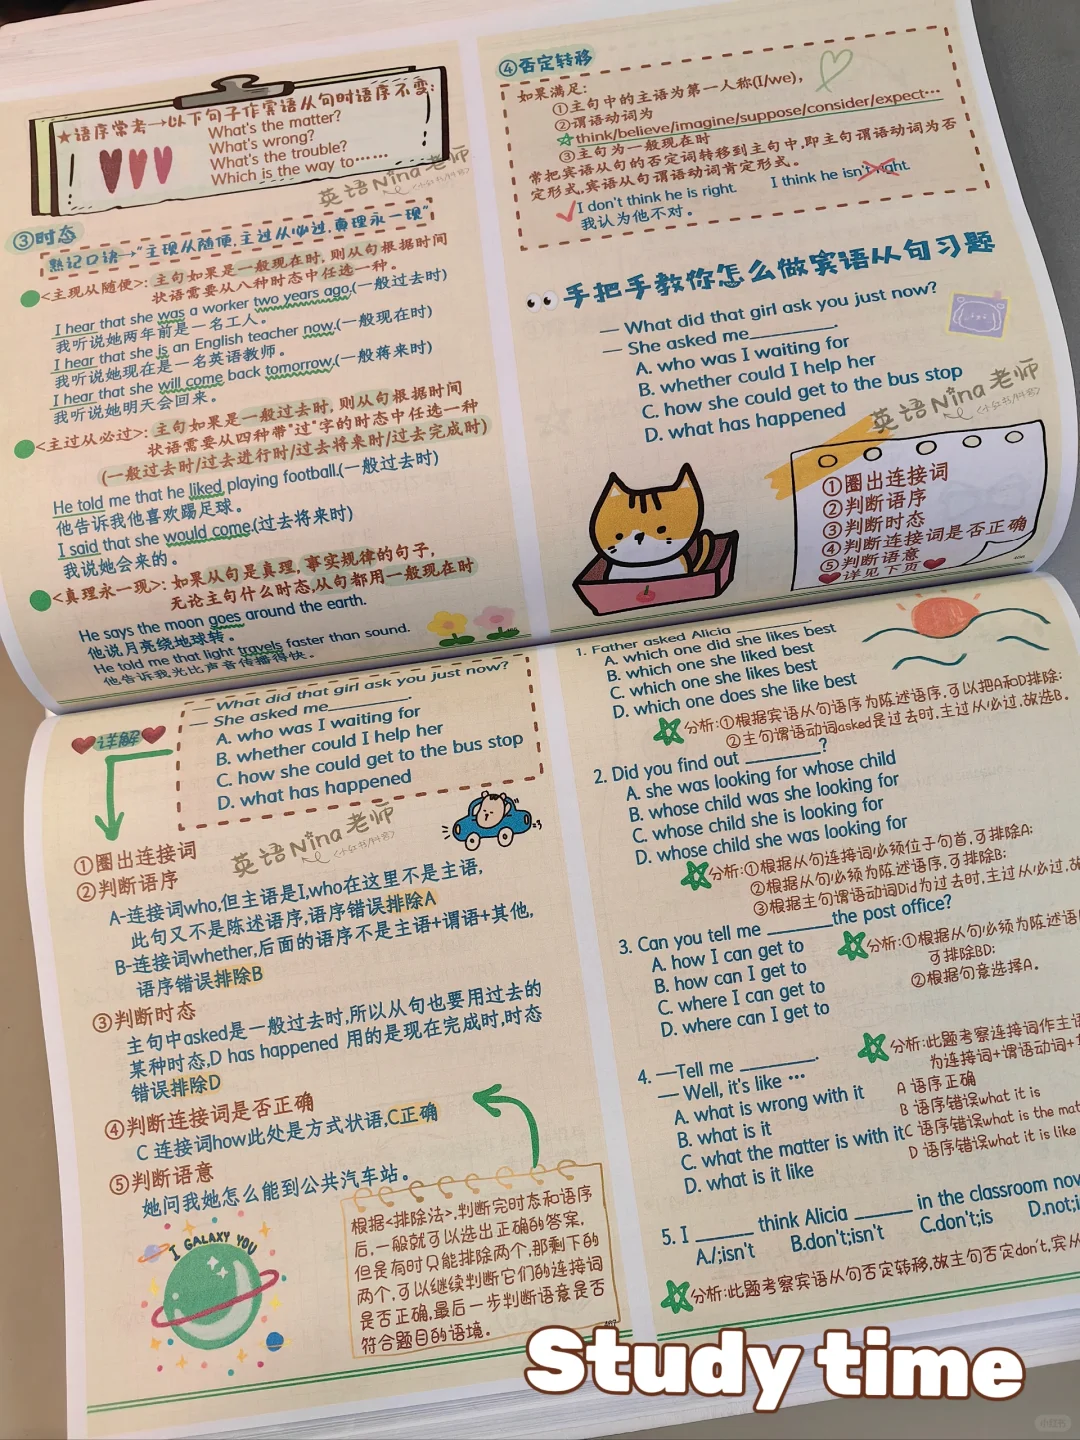 ★语序常考→以下句子作宾语从句时语序不变:
What's the matter?
What's wrong?
What's the trouble?
Which is the way to……
英语Nina老师
(小红书/抖音)
③时态
熟记口诀→"主现从随便,主过从必过,真理永一现"
<主现从随便>: 主句如果是一般现在时, 则从句根据时间
状语需要从八种时态中任选一种。
I hear that she was a worker two years ago.(一般过去时)
我听说她两年前是一名工人。
I hear that she is an English teacher now.(一般现在时)
我听说她现在是一名英语教师。
I hear that she will come back tomorrow.(一般将来时)
我听说她明天会回来。
<主过从必过>: 主句如果是一般过去时, 则从句根据时间
状语需要从四种带"过"字的时态中任选一种
(一般过去时/过去进行时/过去将来时/过去完成时)
He told me that he liked playing football.(一般过去时)
他告诉我他喜欢踢足球。
I said that she would come.(过去将来时)
我说她会来的。
<真理永一现>: 如果从句是真理, 事实规律的句子,
无论主句什么时态,从句都用一般现在时
He says the moon goes around the earth.
他说月亮绕地球转。
He told me that light travels faster than sound.
他告诉我光比声音传播得快。
④否定转移
如果满足:
①主句中的主语为第一人称(I/we),
②谓语动词为
think/believe/imagine/suppose/consider/expect…
③主句为一般现在时
常把宾语从句的否定词转移到主句中,即主句谓语动词为否
定形式,宾语从句谓语动词肯定形式。
I don't think he is right. I think he isn't right.
我认为他不对。
手把手教你怎么做宾语从句习题
— What did that girl ask you just now?
— She asked me________.
A. who was I waiting for
B. whether could I help her
C. how she could get to the bus stop
D. what has happened
英语Nina老师
(小红书/抖音)
①圈出连接词
②判断语序
③判断时态
④判断连接词是否正确
⑤判断语意
详见下页
详解
— What did that girl ask you just now?
— She asked me________.
A. who was I waiting for
B. whether could I help her
C. how she could get to the bus stop
D. what has happened
英语Nina老师
(小红书/抖音)
①圈出连接词
②判断语序
A-连接词who,但主语是I,who在这里不是主语,
此句又不是陈述语序,语序错误排除A
B-连接词whether,后面的语序不是主语+谓语+其他,
语序错误排除B
③判断时态
主句中asked是一般过去时,所以从句也要用过去的
某种时态,D has happened 用的是现在完成时,时态
错误排除D
④判断连接词是否正确
C 连接词how此处是方式状语,C正确
⑤判断语意
她问我她怎么能到公共汽车站。
I GALAXY YOU
根据<排除法>,判断完时态和语序
后,一般就可以选出正确的答案,
但是有时只能排除两个,那剩下的
两个,可以继续判断它们的连接词
是否正确,最后一步判断语意是否
符合题目的语境。
1. Father asked Alicia ________.
A. which one did she likes best
B. which one she liked best
C. which one she likes best
D. which one does she like best
分析:①根据宾语从句语序为陈述语序,可以把A和D排除;
②主句谓语动词asked是过去时,主过从必过,故选B。
2. Did you find out ________?
A. she was looking for whose child
B. whose child was she looking for
C. whose child she is looking for
D. whose child she was looking for
分析:①根据从句连接词必须位于句首,可排除A;
②根据从句必须为陈述语序,可排除B;
③根据主句谓语动词Did为过去时,主过从必过,故
3. Can you tell me ________the post office?
A. how I can get to
B. how can I get to
C. where I can get to
D. where can I get to
分析:①根据从句必须为陈述语
可排除BD;
②根据句意选择A。
4. —Tell me ________.
— Well, it's like …
A. what is wrong with it
B. what is it
C. what the matter is with it
D. what is it like
分析:此题考察连接词作主语
为连接词+谓语动词+
A 语序正确
B 语序错误what it is
C 语序错误what is the mat
D 语序错误what it is like
5. I ______ think Alicia ______ in the classroom now
A./;isn't B.don't;isn't C.don't;is D.not;i
分析:此题考察宾语从句否定转移,故主句否定don't,宾从
Study time
小红书